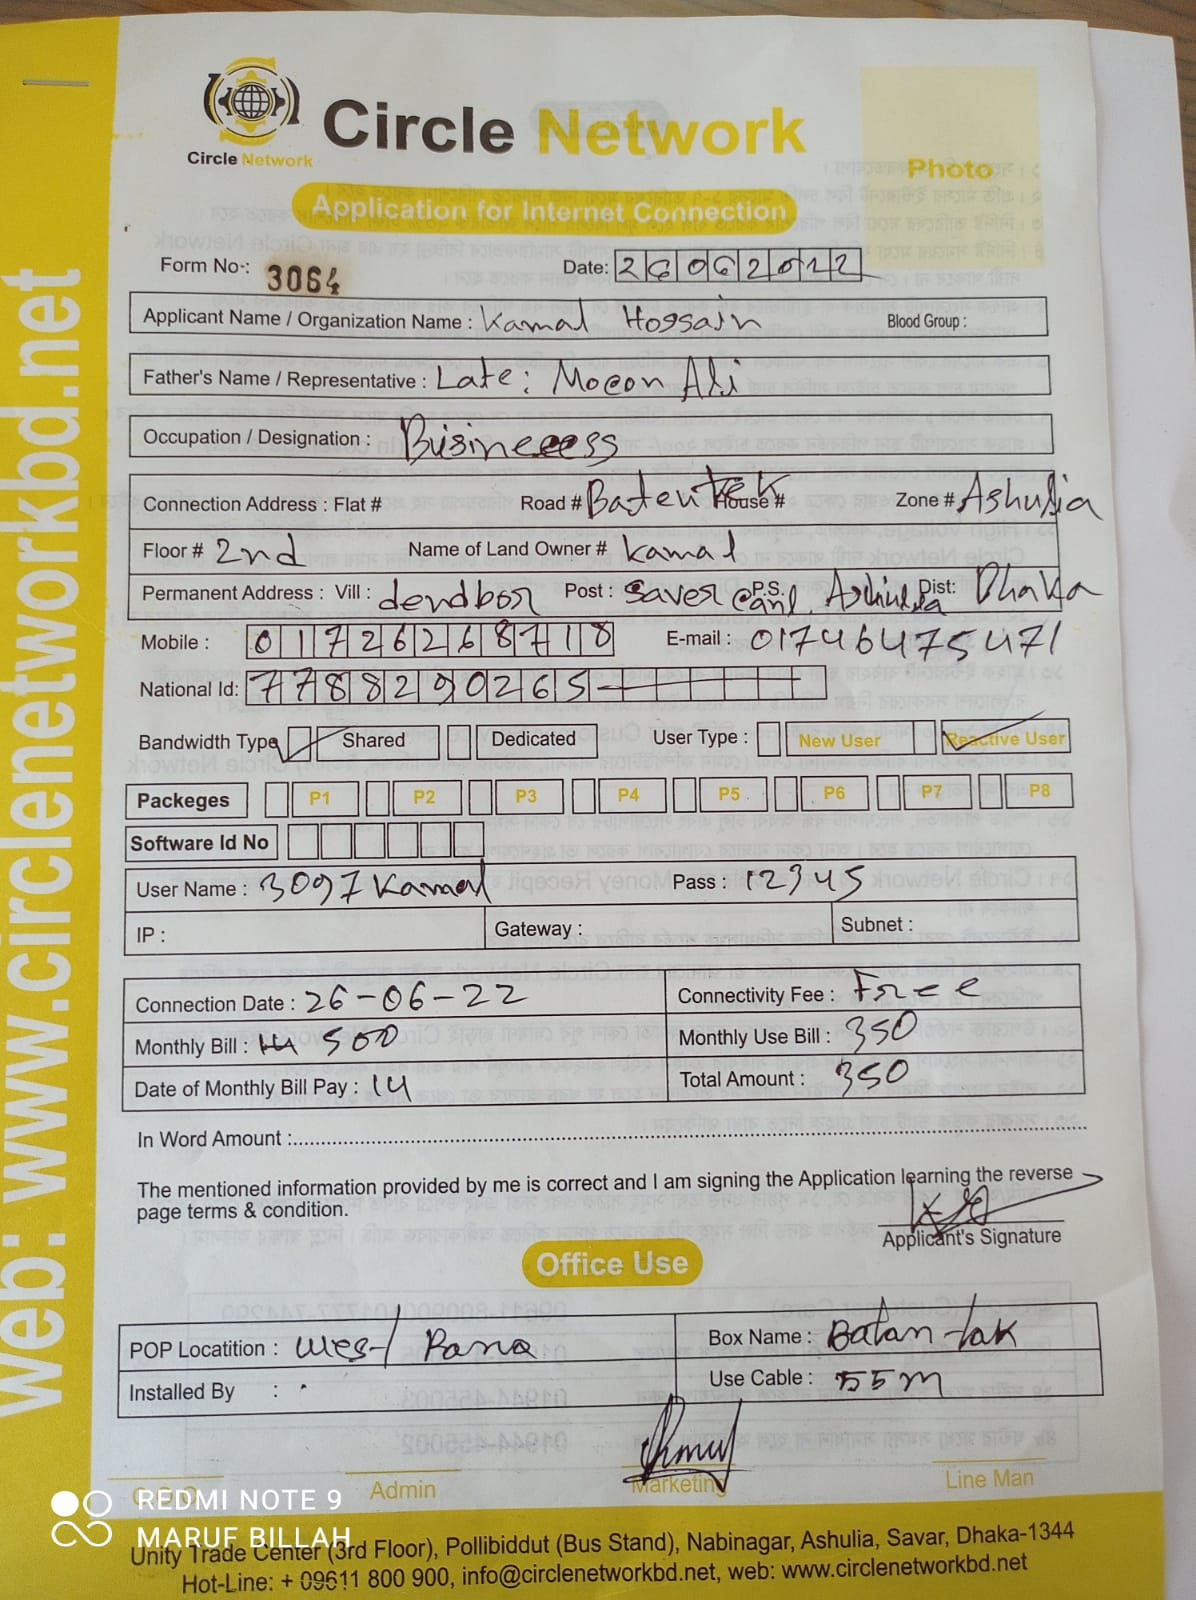 Web: www.circlenetworkbd.net
Circle Network
Circle Network
Photo
Application for Internet Connection
Form No-: 3064 Date: 26062022
Applicant Name / Organization Name : Kamal Hossain Blood Group :
Father's Name / Representative : Late: Moeon Ali
Occupation / Designation : Busineeess
Connection Address : Flat # Road # Batentek House # Zone # Ashulia
Floor # 2nd Name of Land Owner # Kamal
Permanent Address : Vill : dendbor Post : Saver P.S. Ashulia Dist: Dhaka
Mobile : 01726268718 E-mail : 01746475471
National Id: 7788290265
Bandwidth Type Shared Dedicated User Type : New User Reactive User
Packeges P1 P2 P3 P4 P5 P6 P7 P8
Software Id No
User Name : 3097Kamal Pass : 12345
IP : Gateway : Subnet :
Connection Date : 26-06-22 Connectivity Fee : Free
Monthly Bill : 500 Monthly Use Bill : 350
Date of Monthly Bill Pay : 14 Total Amount : 350
In Word Amount :
The mentioned information provided by me is correct and I am signing the Application learning the reverse
page terms & condition.
Applicant's Signature
Office Use
POP Locatition : West Para Box Name : Batan tak
Installed By : Use Cable : 55m
Admin Marketing Line Man
REDMI NOTE 9
MARUF BILLAH
Unity Trade Center (3rd Floor), Pollibiddut (Bus Stand), Nabinagar, Ashulia, Savar, Dhaka-1344
Hot-Line: + 09611 800 900, info@circlenetworkbd.net, web: www.circlenetworkbd.net